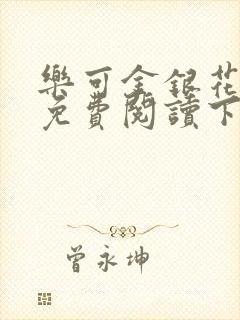 樂可金銀花
免費閱讀下
曾永坤